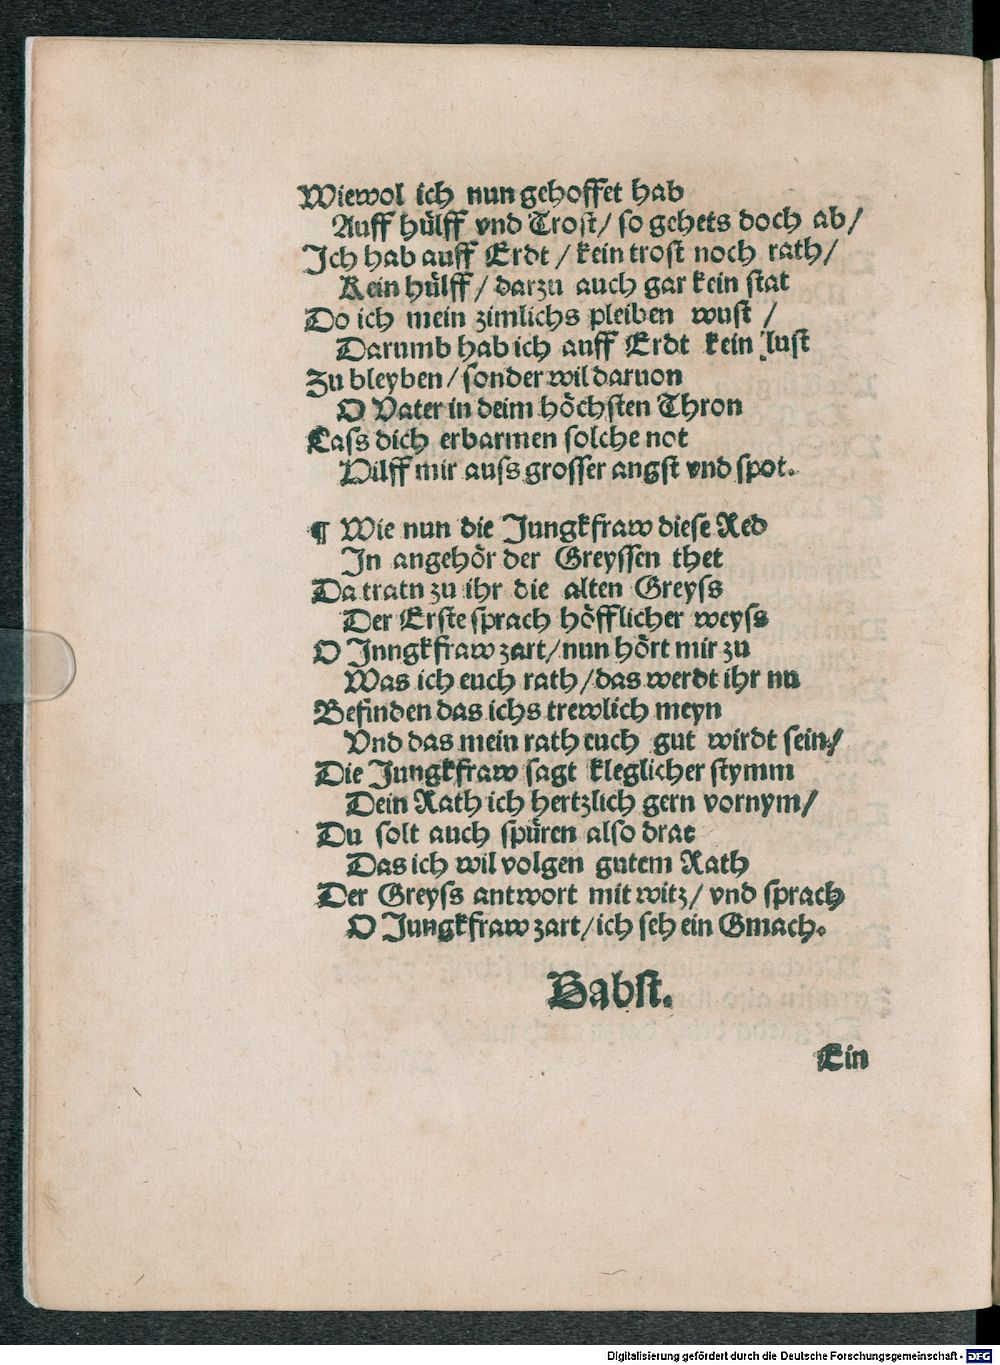 Wiewol ich nun gehoffet hab
Auff hülff vnd Trost/ so gehets doch ab/
Ich hab auff Erdt / kein trost noch rath/
Kein hülff / darzu auch gar kein stat
Do ich mein zimlichs pleiben wust /
Darumb hab ich auff Erdt kein lust
Zu bleyben / sonder wil daruon
O Vater in deim höchsten Thron
Lass dich erbarmen solche not
Hilff mir auss grosser angst vnd spot.
¶ Wie nun die Jungkfraw diese Red
In angehör der Greyssen thet
Da tratn zu ihr die alten Greyss
Der Erste sprach höfflicher weyss
O Jnngkfraw zart/ nun hört mir zu
Was ich euch rath / das werdt ihr nu
Befinden das ichs trewlich meyn
Vnd das mein rath euch gut wirdt sein/
Die Jungkfraw sagt kleglicher stymm
Dein Rath ich hertzlich gern vornym/
Du solt auch spüren also drat
Das ich wil volgen gutem Rath
Der Greyss antwort mit witz/ vnd sprach
O Jungkfraw zart/ ich seh ein Gmach.
Babst.
Ein
Digitalisierung gefördert durch die Deutsche Forschungsgemeinschaft - DFG